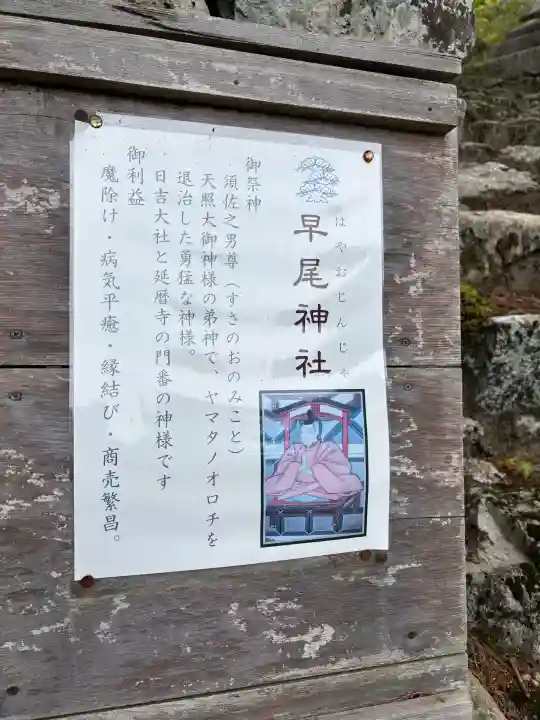 早尾神社
はやおじんじゃ
御祭神
須佐之男尊（すさのおのみこと）
天照大御神様の弟神で、ヤマタノオロチを
退治した勇猛な神様。
日吉大社と延暦寺の門番の神様です
御利益
魔除け・病気平癒・縁結び・商売繁昌。